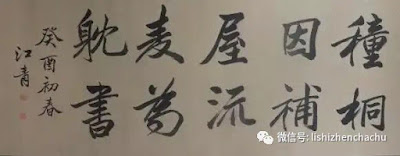 種桐
因補
屋流
麦為
躭書
癸酉初春
江青
微信号: lishizhenchachu